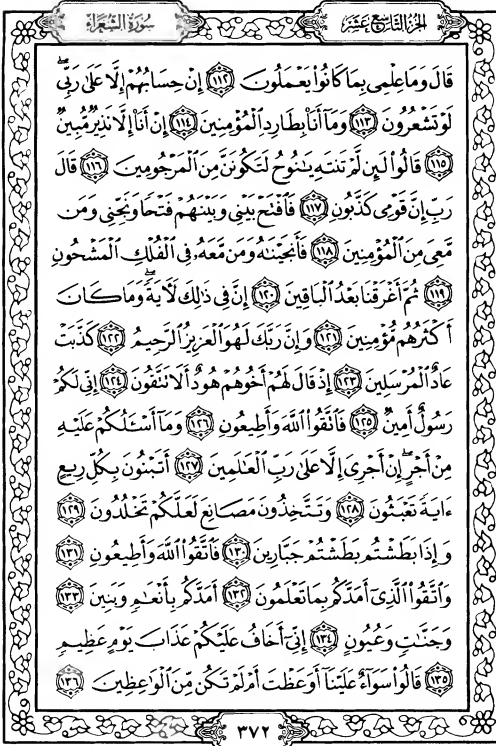 سُورَةُ الشُّعَرَاءِ
الجُزْءُ التَّاسِعَ عَشَرَ
قَالَ وَمَا عِلْمِى بِمَا كَانُوا۟ يَعْمَلُونَ ۝١١٢ إِنْ حِسَابُهُمْ إِلَّا عَلَىٰ رَبِّى ۖ
لَوْ تَشْعُرُونَ ۝١١٣ وَمَآ أَنَا۠ بِطَارِدِ ٱلْمُؤْمِنِينَ ۝١١٤ إِنْ أَنَا۠ إِلَّا نَذِيرٌ مُّبِينٌ
۝١١٥ قَالُوا۟ لَئِن لَّمْ تَنتَهِ يَـٰنُوحُ لَتَكُونَنَّ مِنَ ٱلْمَرْجُومِينَ ۝١١٦ قَالَ
رَبِّ إِنَّ قَوْمِى كَذَّبُونِ ۝١١٧ فَٱفْتَحْ بَيْنِى وَبَيْنَهُمْ فَتْحًا وَنَجِّنِى وَمَن
مَّعِىَ مِنَ ٱلْمُؤْمِنِينَ ۝١١٨ فَأَنجَيْنَـٰهُ وَمَن مَّعَهُۥ فِى ٱلْفُلْكِ ٱلْمَشْحُونِ
۝١١٩ ثُمَّ أَغْرَقْنَا بَعْدُ ٱلْبَاقِينَ ۝١٢٠ إِنَّ فِى ذَٰلِكَ لَـَٔايَةً ۖ وَمَا كَانَ
أَكْثَرُهُم مُّؤْمِنِينَ ۝١٢١ وَإِنَّ رَبَّكَ لَهُوَ ٱلْعَزِيزُ ٱلرَّحِيمُ ۝١٢٢ كَذَّبَتْ
عَادٌ ٱلْمُرْسَلِينَ ۝١٢٣ إِذْ قَالَ لَهُمْ أَخُوهُمْ هُودٌ أَلَا تَتَّقُونَ ۝١٢٤ إِنِّى لَكُمْ
رَسُولٌ أَمِينٌ ۝١٢٥ فَٱتَّقُوا۟ ٱللَّهَ وَأَطِيعُونِ ۝١٢٦ وَمَآ أَسْـَٔلُكُمْ عَلَيْهِ
مِنْ أَجْرٍ ۖ إِنْ أَجْرِىَ إِلَّا عَلَىٰ رَبِّ ٱلْعَـٰلَمِينَ ۝١٢٧ أَتَبْنُونَ بِكُلِّ رِيعٍ
ءَايَةً تَعْبَثُونَ ۝١٢٨ وَتَتَّخِذُونَ مَصَانِعَ لَعَلَّكُمْ تَخْلُدُونَ ۝١٢٩
وَإِذَا بَطَشْتُم بَطَشْتُمْ جَبَّارِينَ ۝١٣٠ فَٱتَّقُوا۟ ٱللَّهَ وَأَطِيعُونِ ۝١٣١
وَٱتَّقُوا۟ ٱلَّذِىٓ أَمَدَّكُم بِمَا تَعْلَمُونَ ۝١٣٢ أَمَدَّكُم بِأَنْعَـٰمٍ وَبَنِينَ ۝١٣٣
وَجَنَّـٰتٍ وَعُيُونٍ ۝١٣٤ إِنِّىٓ أَخَافُ عَلَيْكُمْ عَذَابَ يَوْمٍ عَظِيمٍ
۝١٣٥ قَالُوا۟ سَوَآءٌ عَلَيْنَآ أَوَعَظْتَ أَمْ لَمْ تَكُن مِّنَ ٱلْوَٰعِظِينَ ۝١٣٦
٣٧٢